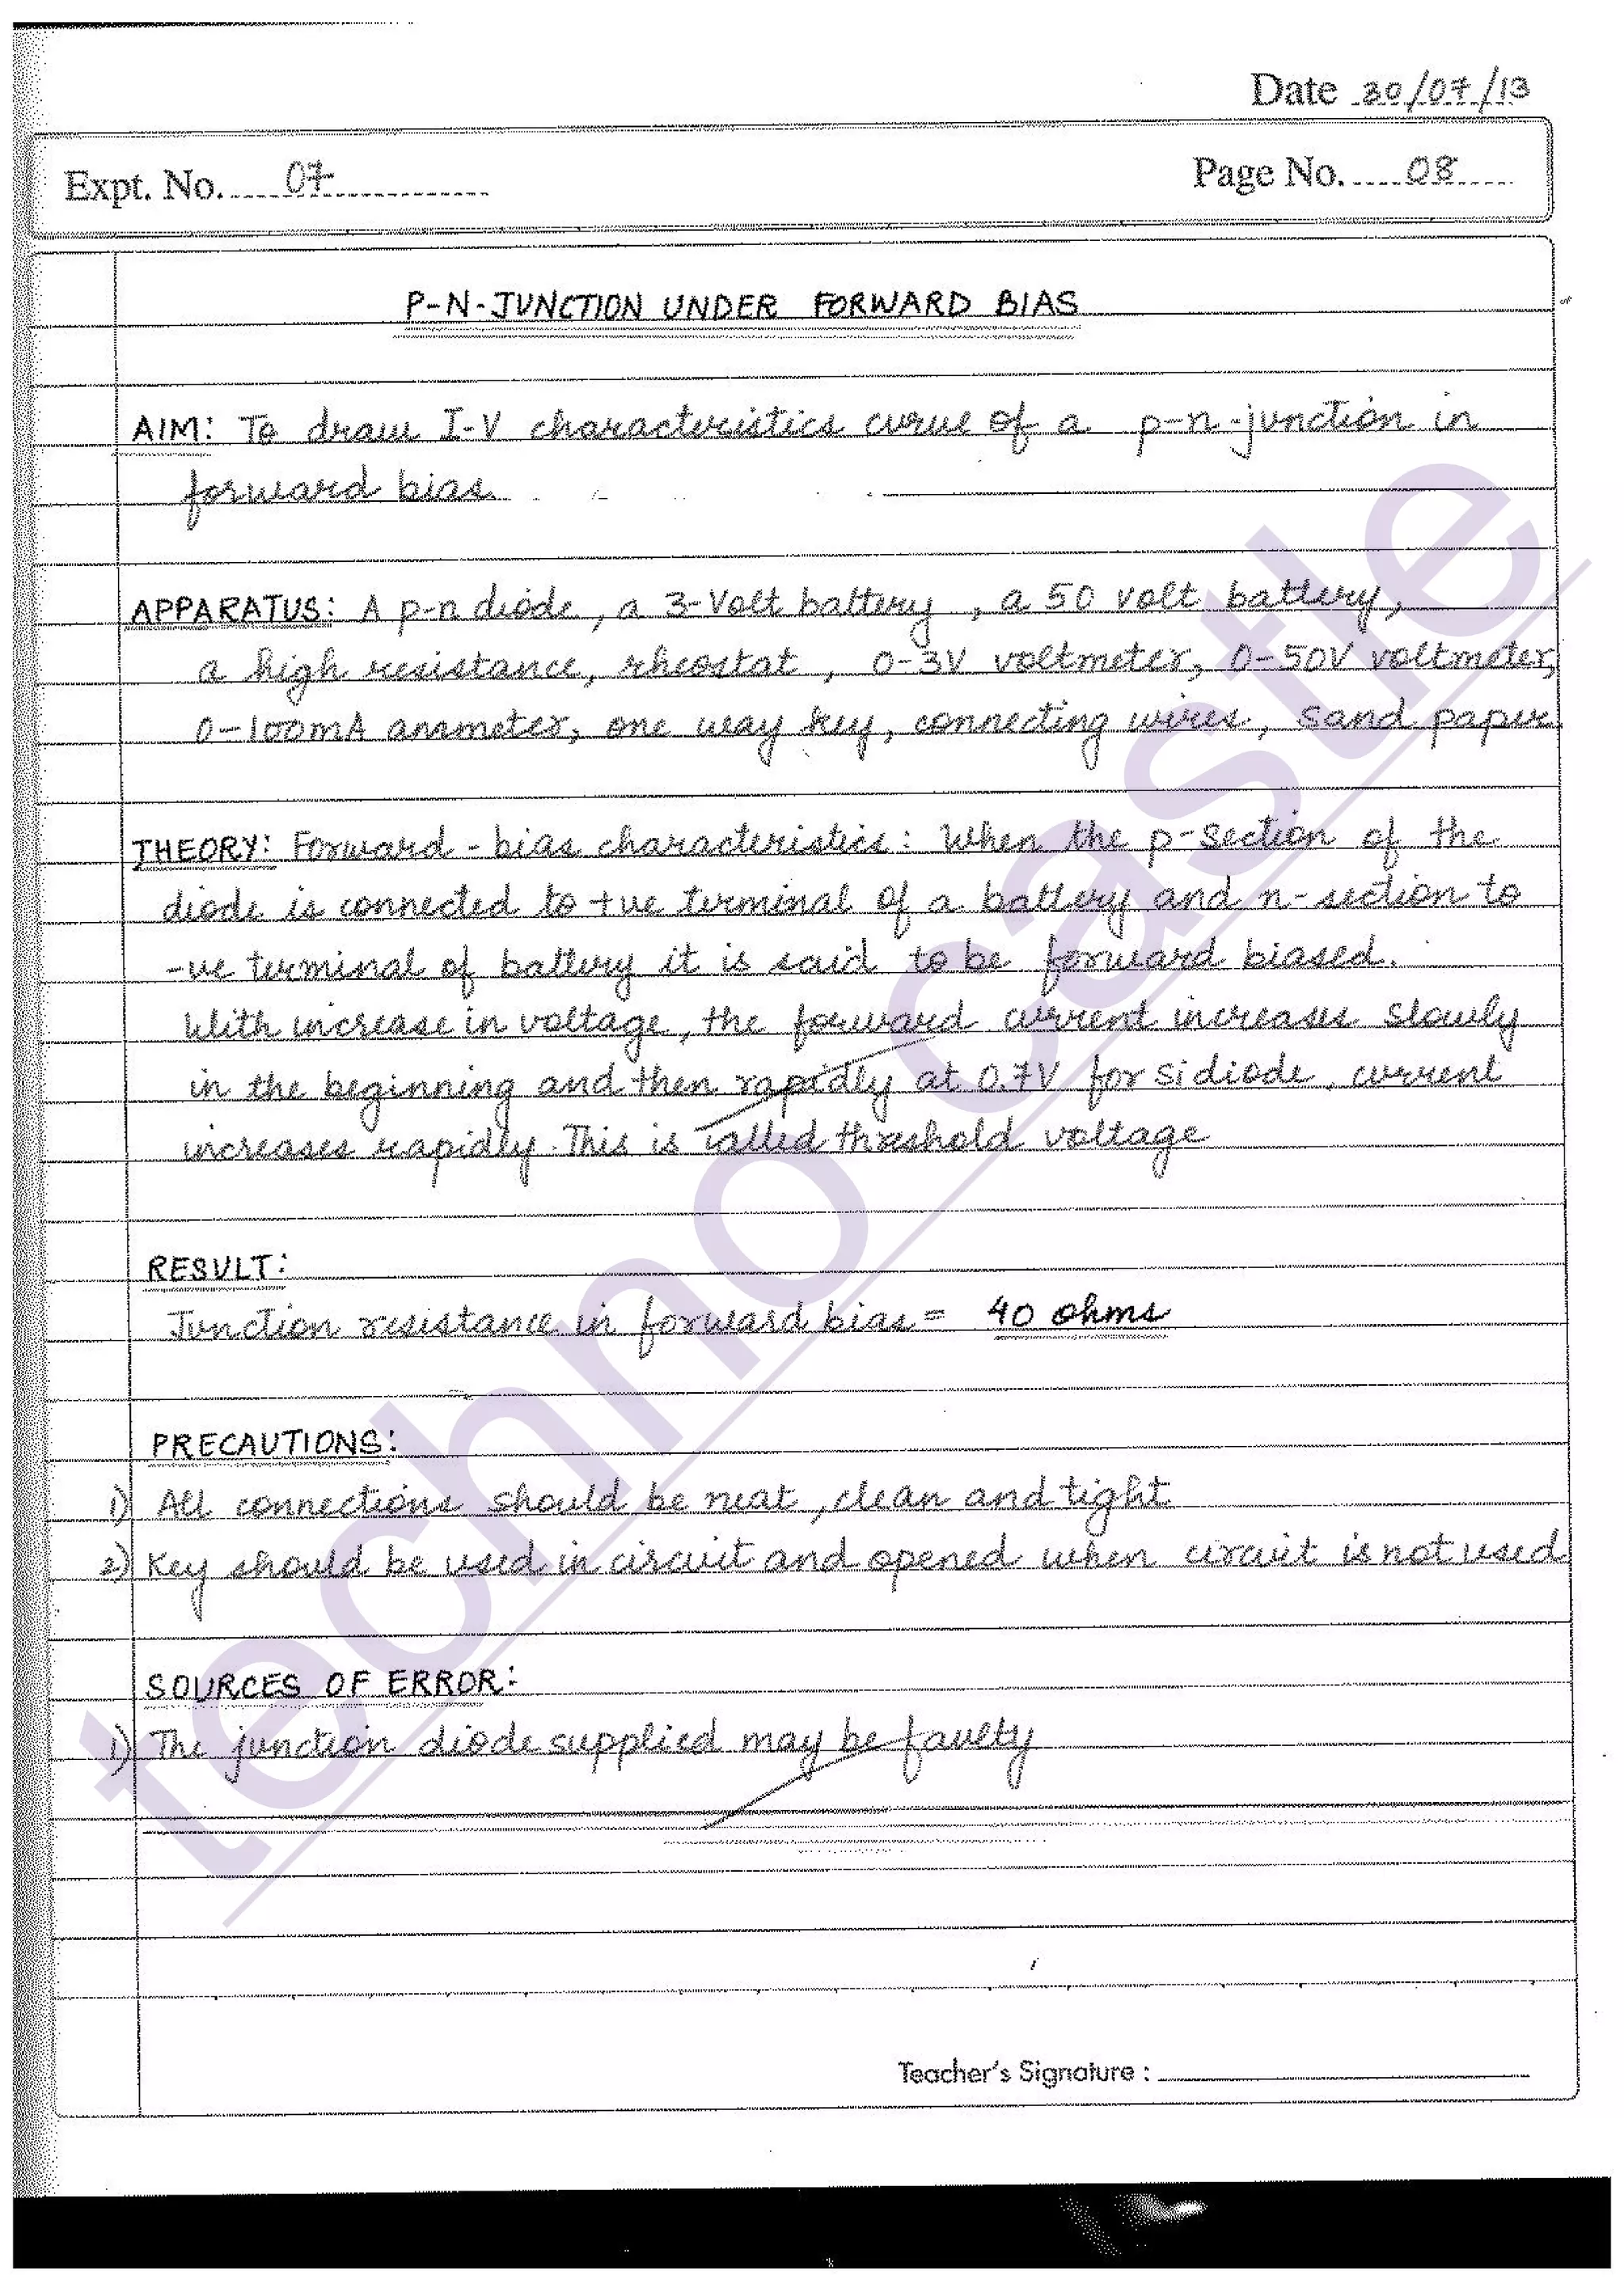 Date 30/07/13
Expt. No. 07
Page No. 08
P-N-JUNCTION UNDER FORWARD BIAS
AIM: To draw I-V characteristics curve of a p-n-junction in
forward bias.
APPARATUS: A p-n diode, a 3-Volt battery, a 50 volt battery,
a high resistance, rheostat, 0-3V voltmeter, 0-50V voltmeter,
0-100mA ammeter, one way key, connecting wires, sand paper.
THEORY: Forward-bias characteristics: When the p-section of the
diode is connected to +ve terminal of a battery and n-section to
-ve terminal of battery it is said to be forward biased.
With increase in voltage, the forward current increases slowly
in the beginning and then rapidly at 0.7V for si diode, current
increases rapidly. This is called threshold voltage
RESULT:
Junction resistance in forward bias = 40 ohms
PRECAUTIONS:
1) All connections should be neat, clean and tight
2) Key should be used in circuit and opened when circuit is not used
SOURCES OF ERROR:
1) The junction diode supplied may be faulty
Teacher's Signature :
techno castle